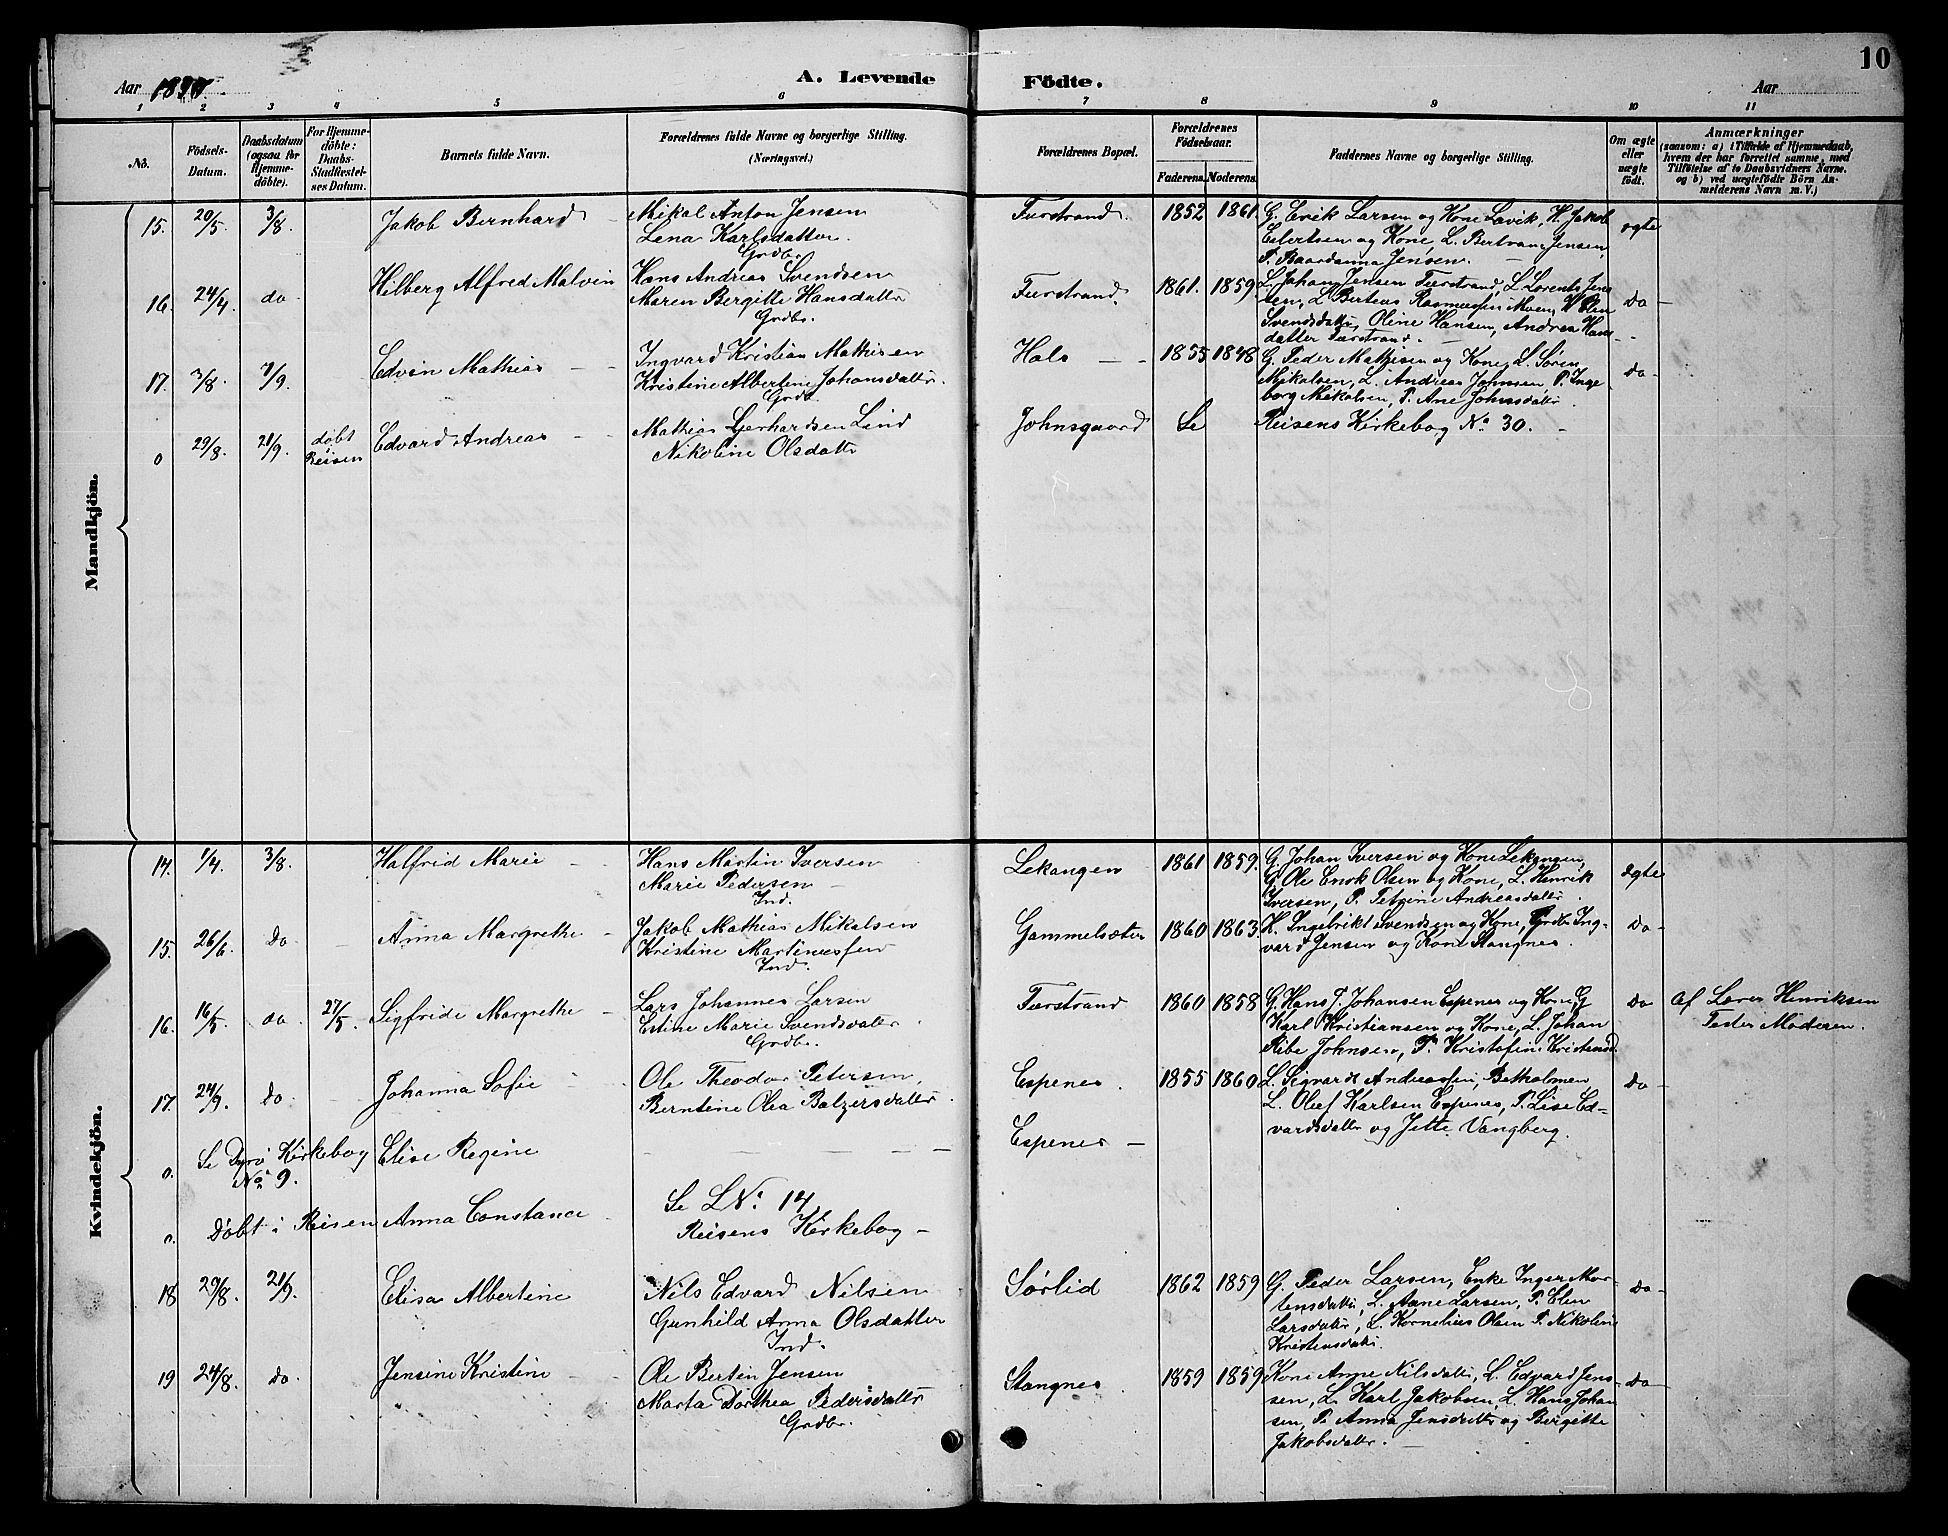 10
Aar
A. Levende
Födte.
Aar
1 2 3 4 5 6 7 8 9 10 11
No.
Födsels-
Datum.
Daabsdatum
(ogsaa for
Hjemme-
döbte).
For Hjemme-
döbte:
Daabs-
Stadfæstel-
ses Datum.
Barnets fulde Navn.
Forældrenes fulde Navne og borgerlige Stilling.
(Næringsvei.)
Forældrenes Bopæl.
Forældrenes
Födselsaar.
Faderens. Moderens.
Faddernes Navne og borgerlige Stilling.
Om ægte
eller
uægte
födt.
Anmærkninger
(saasom: a) i Tilfælde af Hjemmedaab,
hvem der har forrettet samme, med
Tilföielse af to Daabsvidners Navne.
og b) ved uægtefödte Börn An-
melderens Navn m. V.)
Mandkjön.
15. 20/5 3/8 Jakob Bernhard
Mikal Anton Jensen
Lena Karlsdatter
Grdb.
Furstrand. 1852 1861.
G. Erik Larsen og Kone Lavik, H. Jakob
Eilertsen og Kone, L. Bertran Jensen,
P. Baardanna Jensen.
ægte
16. 24/4 do Hilberg Alfred Malvin
Hans Andreas Svendsen
Maren Bergitte Hansdatter
Grdb.
Furstrand 1861. 1859
L. Johan Jensen Furstrand, L. Lorents Jen
sen, L. Berteus Rasmussen Moen, P. Elen
Svendsdatter, Oline Hansen, Andrea Hans
datter Furstrand.
do
17. 3/8. 7/9. Edvin Mathias
Ingvard Kristian Mathisen
Kristine Albertine Johansdatter.
Grdb.
Hals 1855 1848
G. Peder Mathisen og Kone, L. Søren
Mikalsen, L. Andreas Johnsen, P. Inge
borg Mikalsen, P. Ane Johnsdatter.
do
0 29/8. 21/9. døbt
Reisen
Edvard Andreas
Mathias Gerhardsen Lind
Nikoline Olsdatter
Johnsgaard Se Reisens Kirkebog No. 30.
Kvindekjön.
14. 1/4 3/8. Halfrid Marie
Hans Martin Iversen
Marie Pedersen
Ind.
Lekangen 1861 1859.
G. Johan Iversen og Kone Lekangen,
G. Ole Enok Olsen og Kone, L. Henrik
Iversen, P. Petrine Andreasdatter.
ægte
15. 26/6. do Anna Margrethe
Jakob Mathias Mikalsen
Kristine Martinussen
Ind.
Gammelsæter 1860 1863.
H. Ingebrikt Svendsen og Kone, Grdb. Ing-
vard Jensen og Kone Stangnes.
do
16. 16/5. do 27/5. Sigfride Margrethe
Lars Johannes Larsen
Estine Marie Svendsdatter
Grdb.
Furstrand 1860 1858
G. Hans J. Johansen Espenes og Kone, G
Karl Kristiansen og Kone, L. Johan
Ribe Johnsen, P. Kristofine Kristensd.
do
Af Lærer Henriksen
Tester Moderen.
17. 24/9. do Johanna Sofie
Ole Theodor Petersen,
Berntine Olea Balzersdatter.
Espenes. 1855 1860
L. Sigvardt Andreassen, Betholmen
L. Oluf Karlsen Espenes, P. Lise Ed-
vardsdatter og Jette Vangberg.
do
0. Se Dyrø Kirkebog
No. 9.
Elise Regine
Espenes
0. Døbt i Reisen Anna Constance
Se L No. 14
Reisens Kirkebog
18 29/8. 21/9. Elisa Albertine
Nils Edvard Nilsen
Gunhild Anna Olsdatter
Ind.
Sørlid 1862 1859
G. Peder Larsen, Enke Inger Mor-
tensdatter, L. Arne Larsen, P. Elen
Larsdatter, L. Kornelius Olsen P. Nikoline
Kristensdatter
do
19 24/8. do. Jensine Kristine
Ole Bertin Jensen
Marta Dorthea Pedersdatter
Grdbr.
Stangnes 1859 1859
Kone Anne Nilsdatter, L. Edvard Jens-
sen, L. Karl Jakobsen, L. Hans Johan
sen, P. Anna Jensdatter og Bergitte
Jakobsdatter.
do